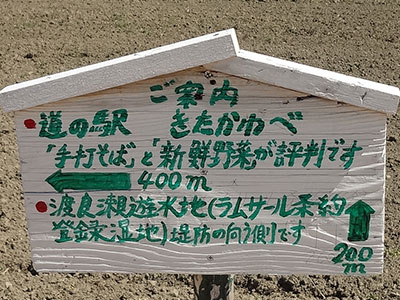 ご案内
道の駅 きたかわべ
「手打そば」と「新鮮野菜」が評判です
400m
渡良瀬遊水地(ラムサール条約
登録湿地)堤防の向う側です
200
m